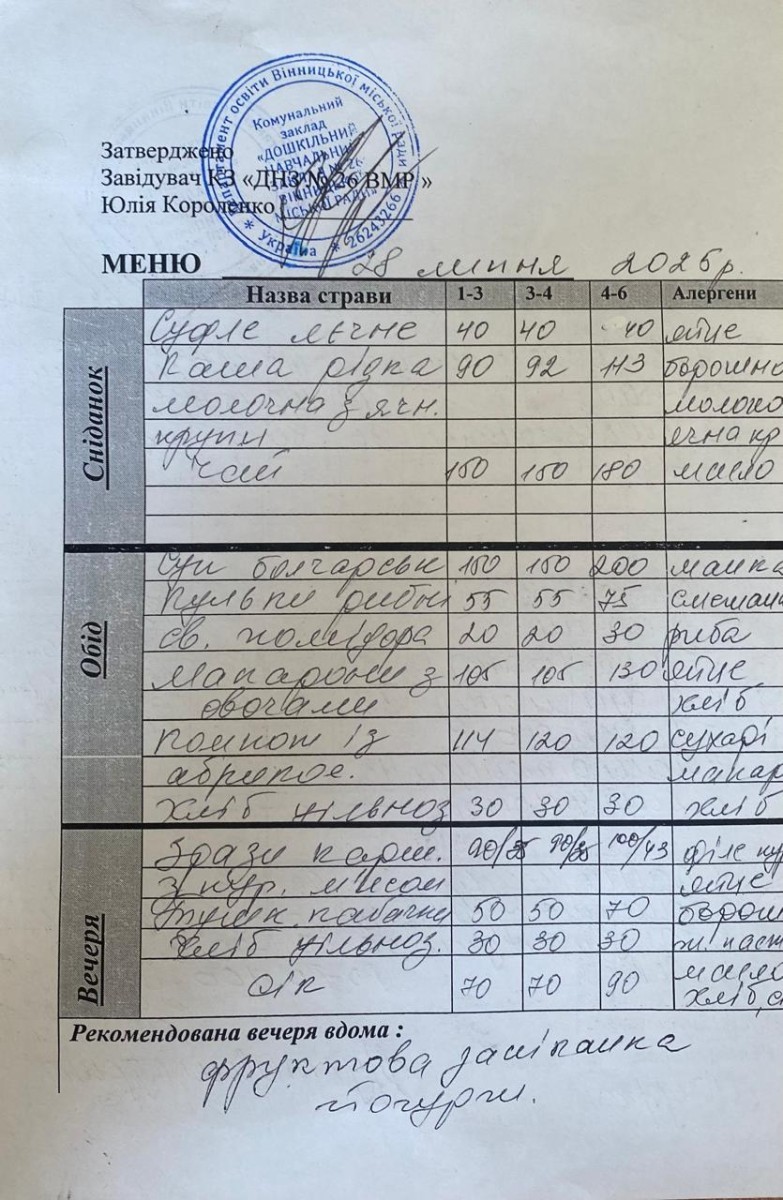 Департамент освіти Вінницької міської ради
Комунальний
заклад
«ДОШКІЛЬНИЙ
НАВЧАЛЬНИЙ
ЗАКЛАД № 26
ВІННИЦЬКОЇ
МІСЬКОЇ РАДИ»
* Україна * 26243266
Затверджено
Завідувач КЗ «ДНЗ № 26 ВМР »
Юлія Короленко
МЕНЮ 28 липня 2025р.
Назва страви 1-3 3-4 4-6 Алергени
Сніданок
Суфле яєчне 40 40 40 яйце
Каша рідка 90 92 113 борошно
молочна з ячн. молоко
крупи ячна кр
Чай 150 150 180 масло
Обід
Суп болгарськ 150 150 200 манка
Кульки рибні 55 55 75 сметана
св. помідора 20 20 30 риба
Макарони з 105 105 130 яйце
овочами хліб
Компот із 114 120 120 сухарі
абрикос. макар
Хліб цільноз 30 30 30 хліб
Вечеря
Зрази карт. 90/35 90/35 100/43 філе кур
з кур. м'ясом яйце
Тушк. кабачки 50 50 70 борош
Хліб цільноз. 30 30 30 т. паст
Сік 70 70 90 масло
хліб, с
Рекомендована вечеря вдома :
фруктова запіканка
йогурт.